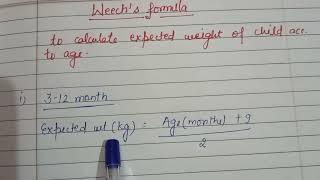 Weech's formula
to calculate expected weight of child acc.
to age.
i) 3-12 month
Expected wt (kg) = Age(months) + 9
2